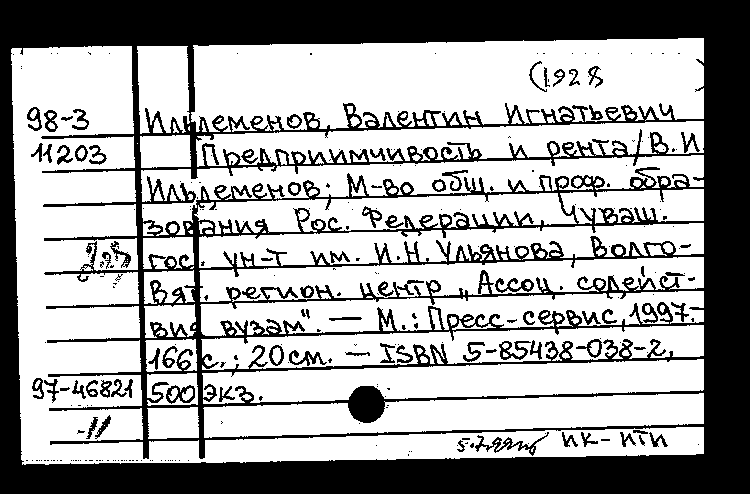 (1928 )
98-3 Ильдеменов, Валентин Игнатьевич
11203 Предприимчивость и рента/В.И.
Ильдеменов; М-во общ. и проф. обра-
зования Рос. Федерации, Чуваш.
гос. ун-т им. И.Н. Ульянова, Волго-
Вят. регион. центр „Ассоц. содейст-
вия вузам". — М.: Пресс-сервис, 1997.-
166 с.; 20 см. — ISBN 5-85438-038-2,
97-46821 500 экз.
-11
ИК- ИТИ